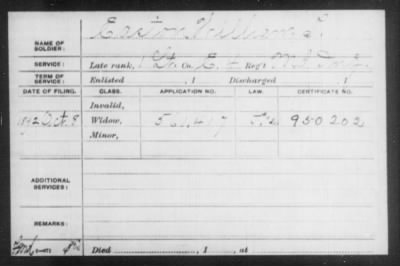 NAME OF SOLDIER: Easton, William S.
SERVICE: Late rank, 1 Lt. Co. E. 4 Reg't Inf.
TERM OF SERVICE: Enlisted , 1 Discharged , 1
DATE OF FILING. CLASS. APPLICATION NO. LAW. CERTIFICATE NO.
Invalid,
1892 Oct. 8 Widow, 561,417 950202
Minor,
ADDITIONAL SERVICES:
REMARKS:
Died , 1 , at